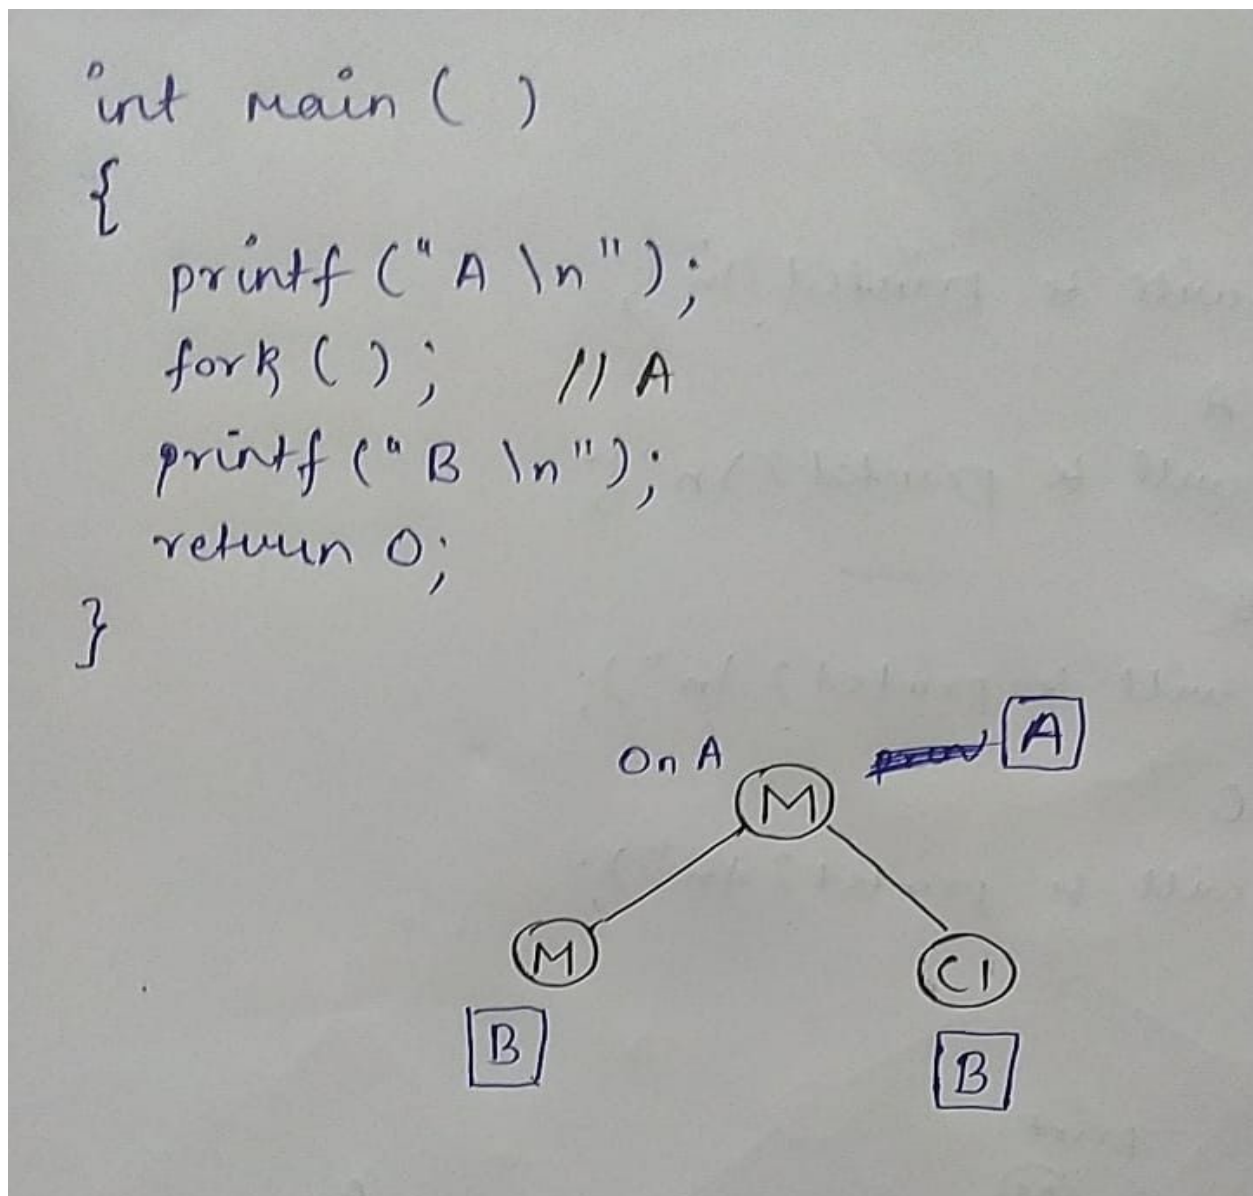 int main ( )
{
printf ("A \n");
fork ( ); // A
printf ("B \n");
return 0;
}
On A
A
M
M
C1
B
B